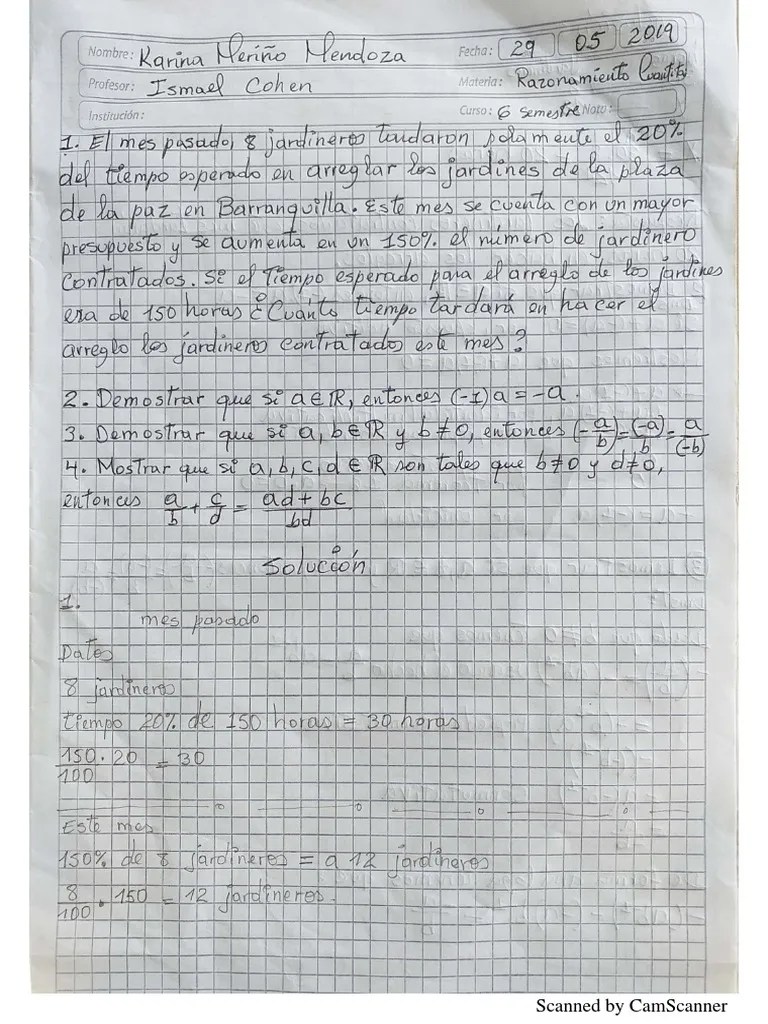 Nombre: Karina Meriño Mendoza Fecha: 29 05 2019
Profesor: Ismael Cohen Materia: Razonamiento Cuantita
Institución: Curso: 6 semestre Nota:
1. El mes pasado, 8 jardineros tardaron solamente el 20%
del tiempo esperado en arreglar los jardines de la plaza
de la paz en Barranquilla. Este mes se cuenta con un mayor
presupuesto y se aumenta en un 150% el número de jardinero
contratados. Si el tiempo esperado para el arreglo de los jardines
era de 150 horas ¿Cuánto tiempo tardará en hacer el
arreglo los jardineros contratados este mes?
2. Demostrar que si a ∈ ℝ, entonces (-1)a = -a.
3. Demostrar que si a, b ∈ ℝ y b ≠ 0, entonces (-a/b) = (-a)/b = a/(-b)
4. Mostrar que si a, b, c, d ∈ ℝ son tales que b ≠ 0 y d ≠ 0,
entonces a/b + c/d = ad + bc/bd
Solución
1.
mes pasado
Datos
8 jardineros
tiempo 20% de 150 horas = 30 horas
150 · 20/100 = 30
Este mes
150% de 8 jardineros = a 12 jardineros
8/100 · 150 = 12 jardineros.
Scanned by CamScanner